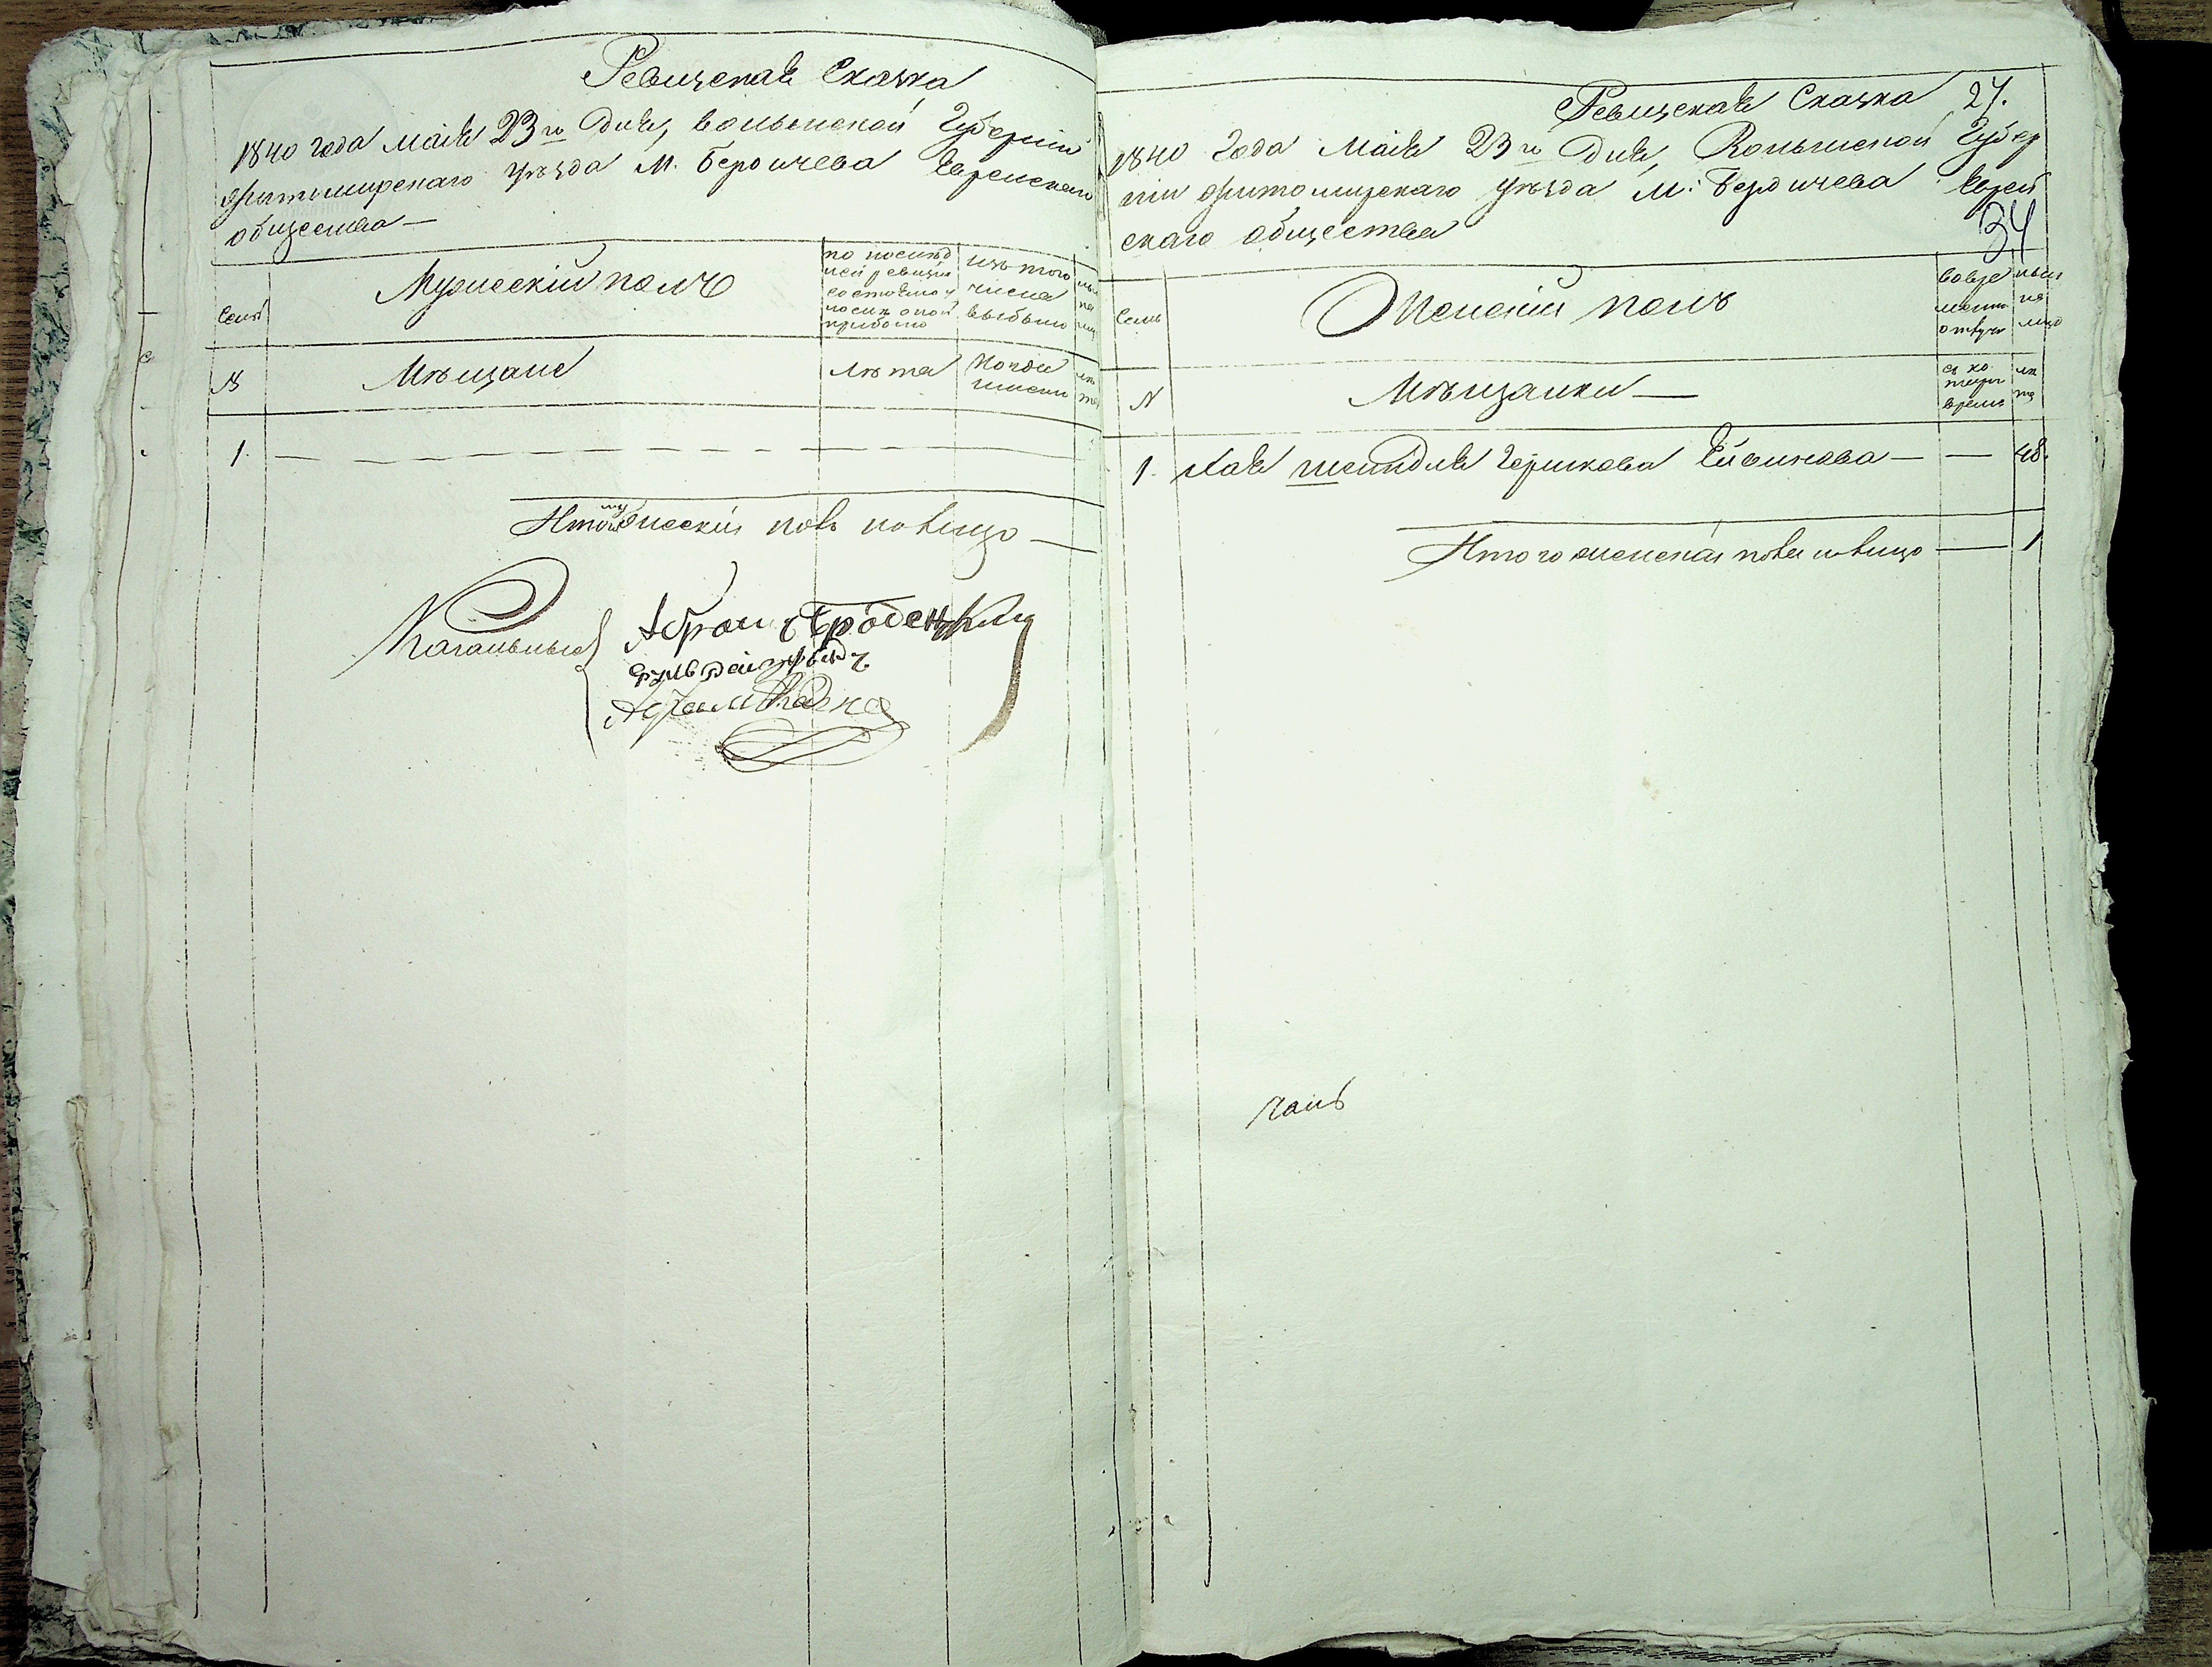 Ревизская Сказка
1840 года Маія 23го дня, Волынской Губерніи
Житомирскаго уѣзда М. Бердичева Еврейскаго
общества —
Семьи
Мужескій полъ
по послѣд
ней ревизіи
состояло и
послѣ оной
прибыло
изъ того
числа
выбыло
№
Мѣщане
лѣта
Когда
именно
лѣ
та
1.
Итого мужеска пола на лицо —
Кагальные
Абрам Бродецкий
Ревизская Сказка 27.
1840 Года Маія 23го Дня, Волынской Губер
ніи Житомирскаго уѣзда М: Бердичева Еврей
скаго общества
34
Семьи
Женскій полъ
во вре
менной
отлуч
нынѣ
на
лицо
№
Мѣщанки —
съ ко
тораго
время
лѣ
та
1. Хая Шейндля Гершкова — — 48.
Итого женска пола на лицо — 1